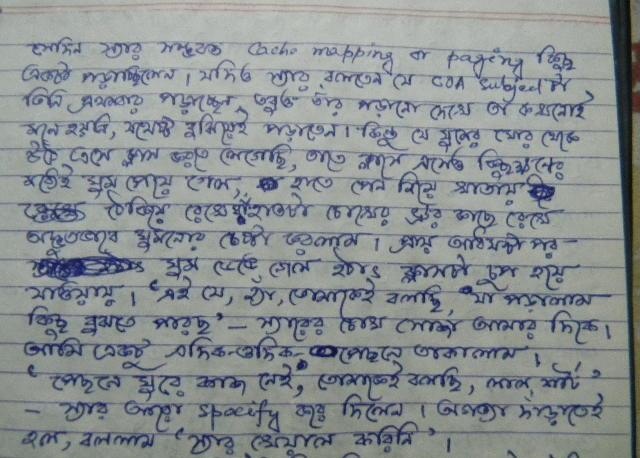 সেদিন স্যার সম্ভবত cache mapping বা paging কিছু
একটা পড়াচ্ছিলেন। যদিও স্যার বলতেন যে COA subject টা
তিনি প্রথমবার পড়াচ্ছেন, তবুও তাঁর পড়ানো দেখে তা কখনোই
মনে হয়নি, যথেষ্ট বুঝিয়েই পড়াতেন। কিন্তু যে ঘুমের ঘোর থেকে
উঠে এসে ক্লাস করতে লেগেছি, তাতে ক্লাসে এসেও কিছুক্ষনের
মধ্যেই ঘুম পেয়ে গেল, হাতে পেন নিয়ে খাতায়
ঠেকিয়ে রেখে হাতটা চোখের ভ্রুর কাছে রেখে
অদ্ভুতভাবে ঘুমানোর চেষ্টা করলাম। প্রায় আধঘন্টা পর-
ঘুম ভেঙে গেল হঠাৎ ক্লাসটা চুপ হয়ে
যাওয়ায়। 'এই যে, হ্যাঁ, তোমাকেই বলছি, যা পড়ালাম
কিছু বুঝতে পারছ' – স্যারের চোখ সোজা আমার দিকে।
আমি একটু এদিক-ওদিক- পেছনে তাকালাম।
'পেছনে ঘুরে কাজ নেই, তোমাকেই বলছি, লাল শার্ট'
– স্যার আরো specify করে দিলেন। অগত্যা দাঁড়াতেই
হল, বললাম 'স্যার খেয়াল করিনি'।